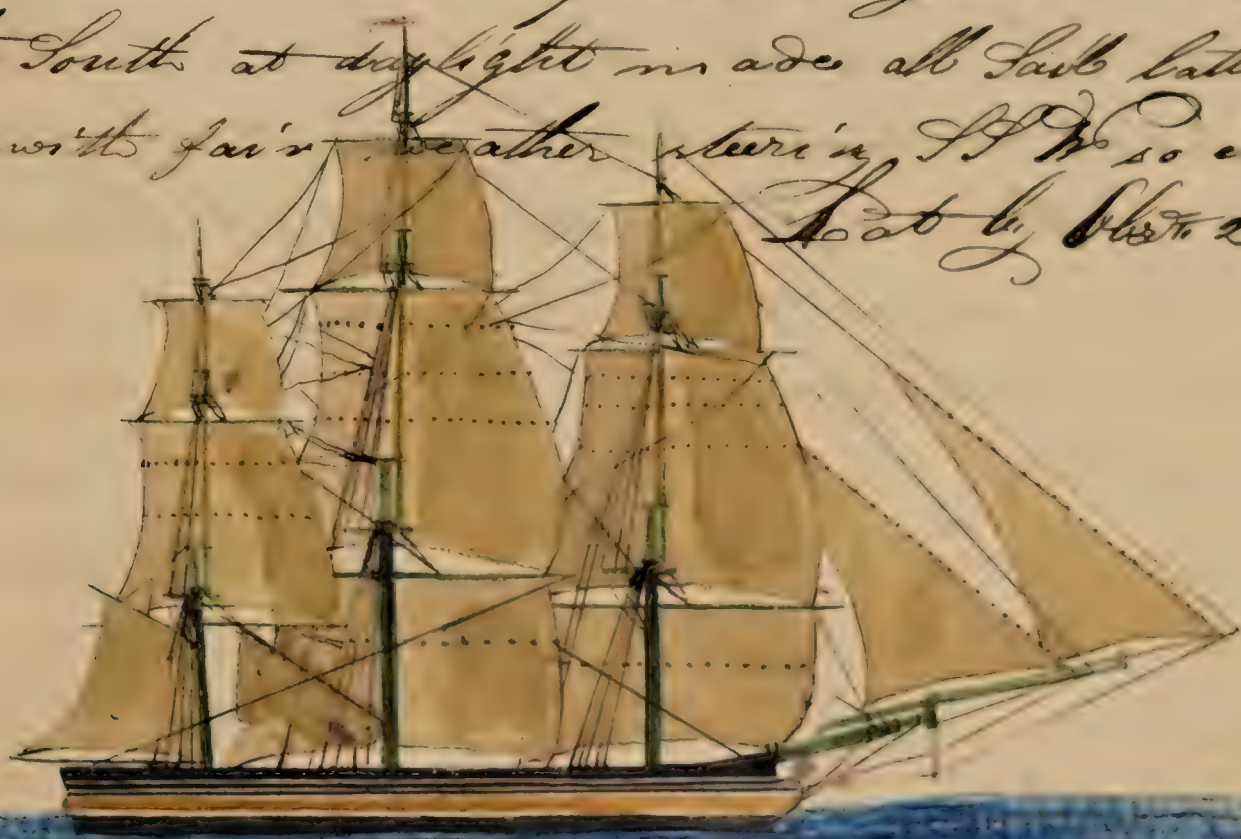 South at daylight made all Sail
with fair weather steering SSW so
Lat by Obs.